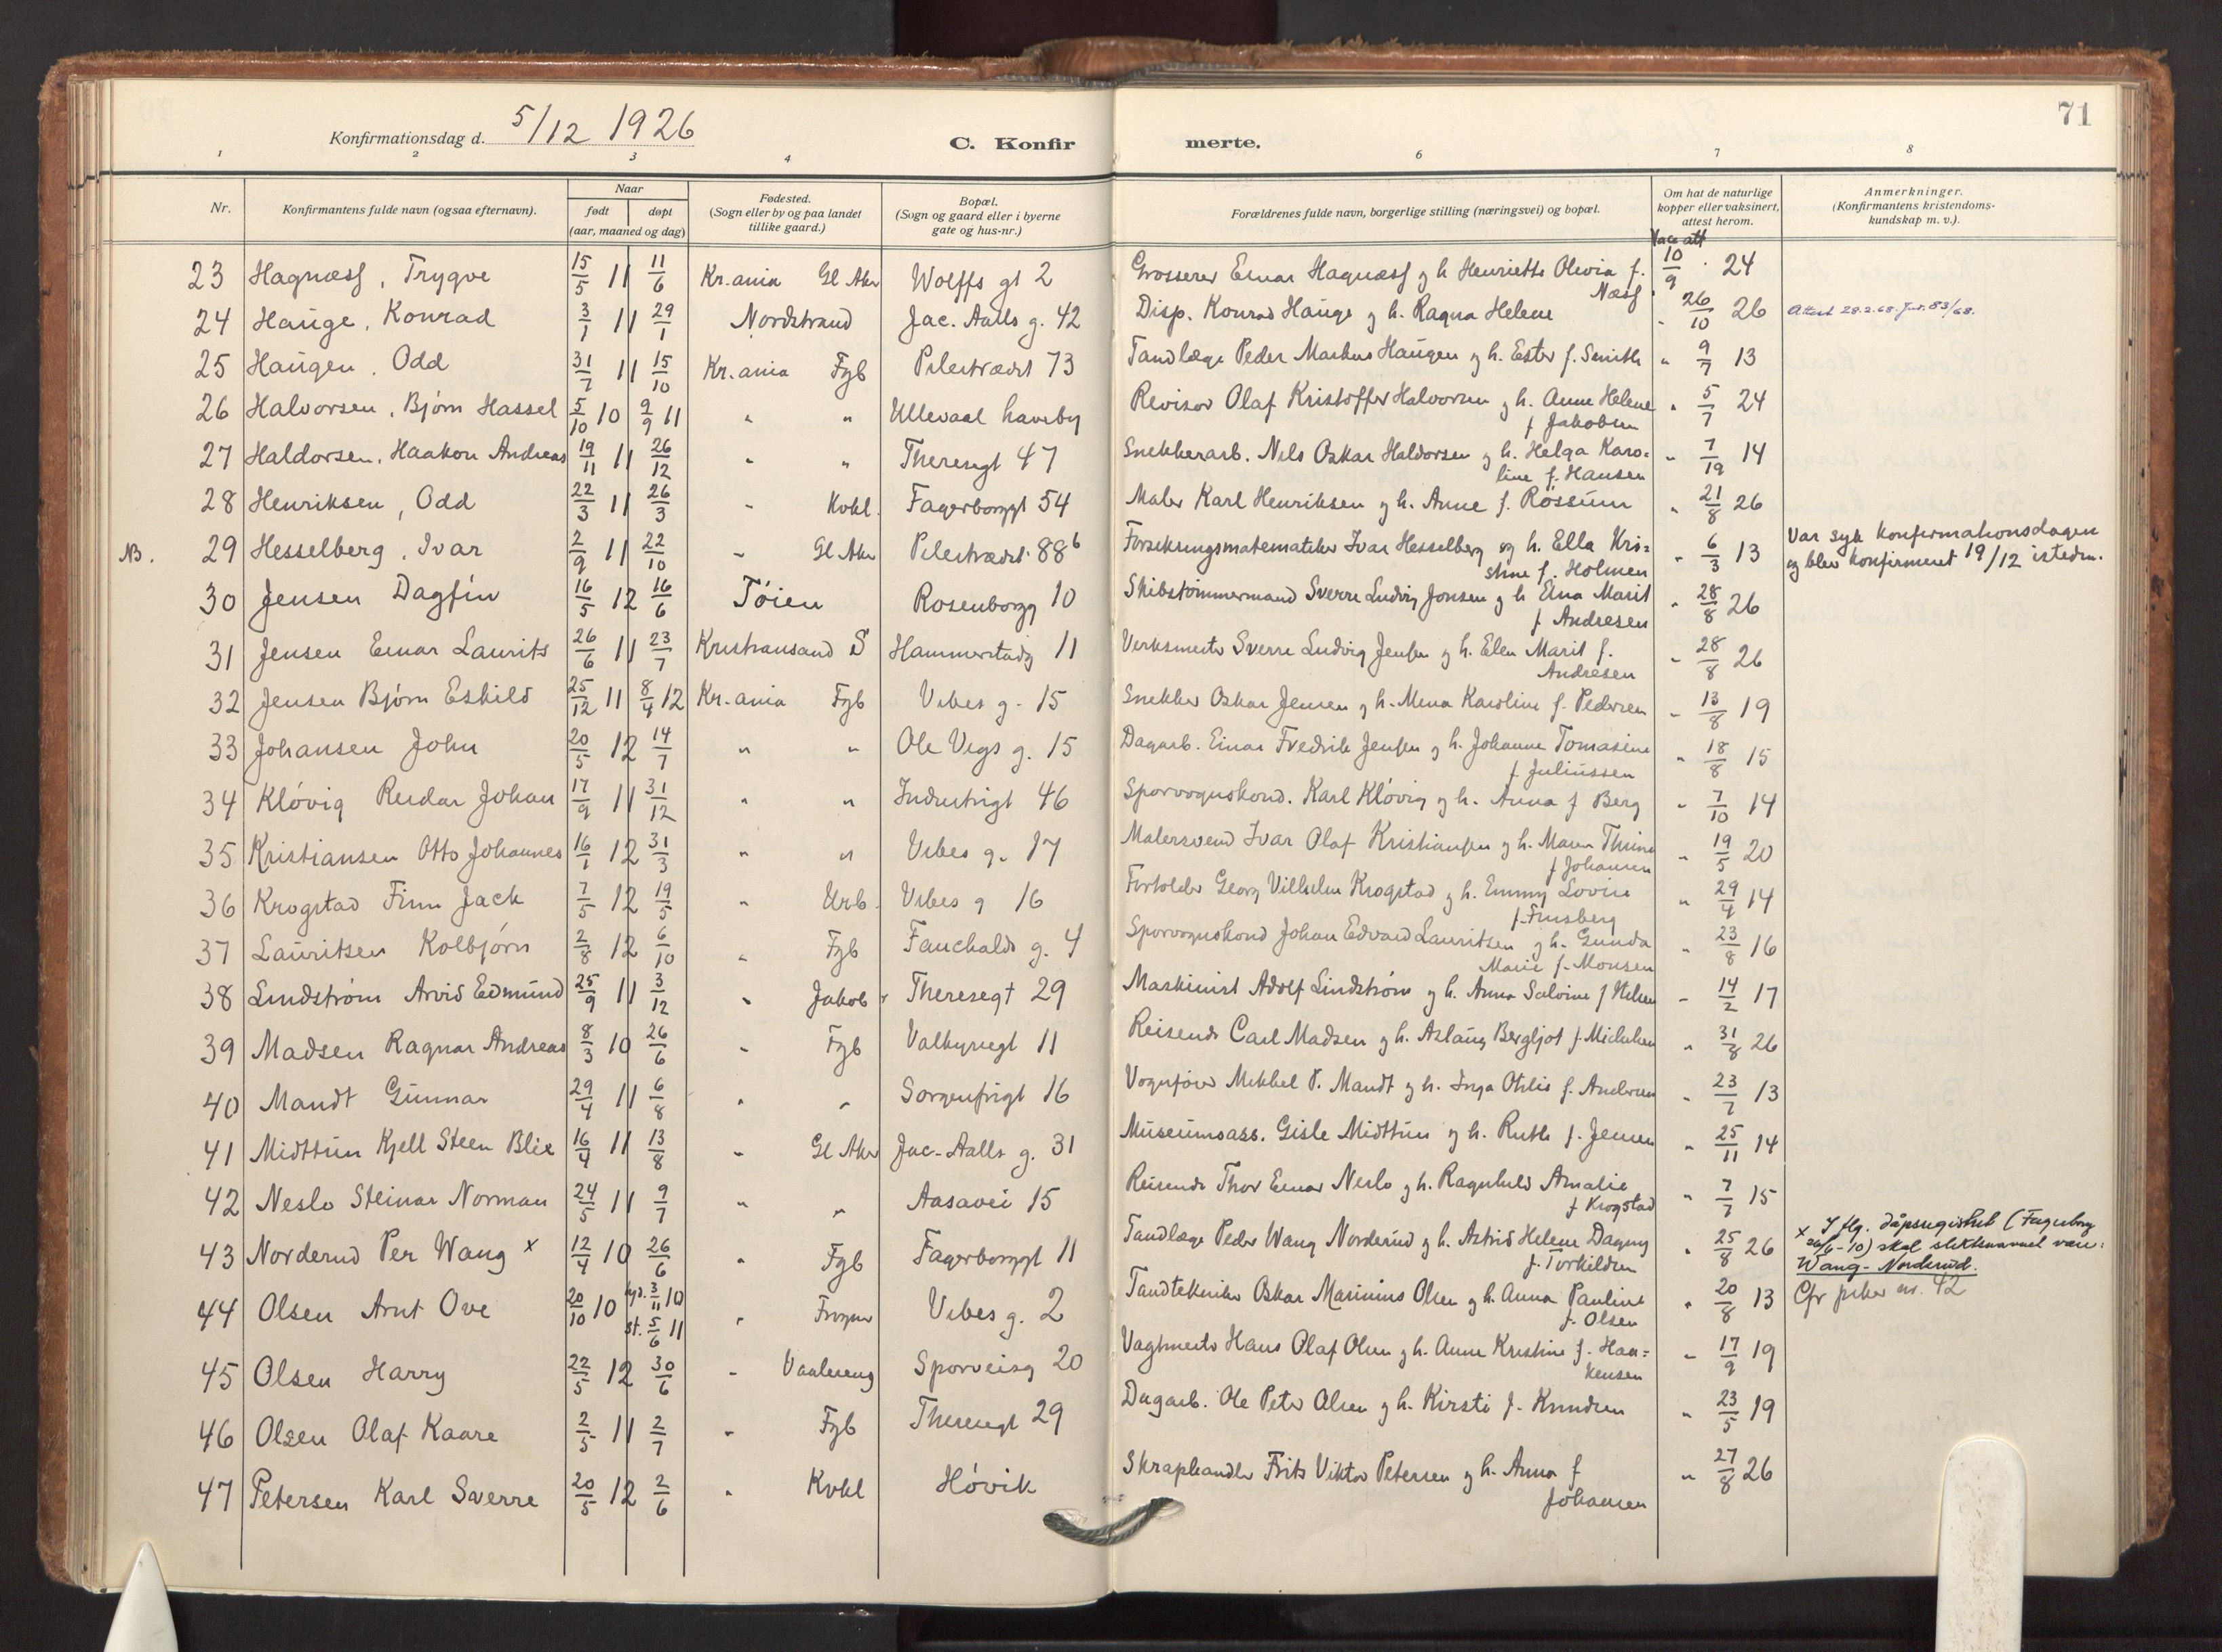 71
Konfirmationsdag d. 5/12 1926
C. Konfir
merte.
1 2 3 4 6 7 8
Nr.
Konfirmantens fulde navn (ogsaa efternavn).
Naar
født døpt
(aar, maaned og dag)
Fødested.
(Sogn eller by og paa landet
tillike gaard.)
Bopæl.
(Sogn og gaard eller i byerne
gate og hus-nr.)
Forældrenes fulde navn, borgerlige stilling (næringsvei) og bopæl.
Om hat de naturlige
kopper eller vaksinert,
attest herom.
Anmerkninger.
(Konfirmantens kristendoms-
kundskap m. v.).
Vacc att
23 Hagnæss, Trygve 15/5 11 11/6 Kr.ania Gl Aker Wolffs gt 2 Grosserer Einar Hagnæss g h Henriette Olivia f. 10/9 24
Næss
24 Hauge, Konrad 3/1 11 29/1 Nordstrand Jac. Aalls g. 42 Disp. Konrad Hauge g h. Ragna Helene " 26/10 26 Attest 28.2.68. Jnr. 83/68.
25 Haugen, Odd 31/7 11 15/10 Kr.ania Fgb Pilestrædet 73 Tandlæge Peder Markus Haugen g h. Ester f. Smith " 9/7 13
26 Halvorsen, Bjørn Hassel 5/10 10 9/9 11 " " Ullevaal haveby Revisor Olaf Kristoffer Halvorsen g h. Anne Helene " 5/7 24
f Jakobsen
27 Haldorsen, Haakon Andreas 19/11 11 26/12 " " Theresegt 47 Snekkerarb. Nils Oskar Haldorsen g h. Helga Karo= " 7/19 14
line f. Hansen
28 Henriksen, Odd 22/3 11 26/3 " Kvkl. Fagerborggt 54 Maler Karl Henriksen g h. Anne f. Røssum " 21/8 26
NB. 29 Hesselberg, Ivar 2/9 11 22/10 " Gl Aker Pilestrædet 88b Forsikringsmatematiker Ivar Hesselberg og h. Ella Kri= " 6/3 13 Var syk konfirmationsdagen
stine f. Holmen og blev konfirmeret 19/12 isteden.
30 Jensen Dagfin 16/5 12 16/6 Tøien Rosenborgg 10 Skibstømmermand Sverre Ludvig Jensen g h Elna Marit " 28/8 26
f Andresen
31 Jensen Einar Laurits 26/6 11 23/7 Kristiansand S Hammerstadg 11 Verksmester Sverre Ludvig Jensen g h. Elen Marit f. " 28/8 26
Andresen
32 Jensen Bjørn Eskild 25/12 11 8/4 12 Kr.ania Fgb Vibes g. 15 Snekker Oskar Jensen g h. Mina Karoline f. Pedersen " 13/8 19
33 Johansen John 20/5 12 14/7 " " Ole Vigs g. 15 Dagarb. Einar Fredrik Jensen g h. Johanne Tomasine " 18/8 15
f Juliussen
34 Kløvig Reidar Johan 17/9 11 31/12 " " Industrigt 46 Sporvognskond. Karl Kløvig g h. Anna f Berg " 7/10 14
35 Kristiansen Otto Johannes 16/1 12 31/3 " " Vibes g. 17 Malersvend Ivar Olaf Kristiansen g h. Maren Thrine " 19/5 20
f Johansen
36 Krogstad Finn Jack 7/5 12 19/5 " Urb. Vibes g 16 Fortolder Georg Vilhelm Krogstad g h. Emmy Lovise " 29/4 14
f. Finsberg
37 Lauritsen Kolbjørn 2/8 12 6/10 " Fgb Fauchalds g. 4 Sporvognskond Johan Edvard Lauritsen g h. Gunda " 23/8 16
Marie f. Monsen
38 Lindstrøm Arvid Edmund 25/9 11 3/12 " Jakob Theresegt 29 Maskinist Adolf Lindstrøm g h. Anna Salvine f Nilsen " 14/2 17
39 Madsen Ragnar Andreas 8/3 10 26/6 " Fgb Valkyriegt 11 Reisende Carl Madsen g h. Aslaug Bergljot f. Michelsen " 31/8 26
40 Mandt Gunnar 29/4 11 6/8 " " Sorgenfrigt 16 Vognfører Mikkel P. Mandt g h. Inga Otilie f. Andersen " 23/7 13
41 Midttun Kjell Steen Blix 16/4 11 13/8 " Gl Aker Jac-Aalls g. 31 Museumsass. Gisle Midttun g h. Ruth f. Jensen " 25/11 14
42 Neslo Steinar Norman 24/5 11 9/7 " " Aasavei 15 Reisende Thor Einar Neslo g h. Ragnhild Amalie " 7/7 15
f Krogstad
43 Norderud Per Wang x 12/4 10 26/6 " Fgb Fagerborggt 11 Tandlæge Peder Wang Norderud g h. Astrid Helene Dagny " 25/8 26 x I flg. dåpsregistret (Fagerborg
f. Torkildsen 26/6-10) skal slektsnavnet være:
Wang-Norderud.
44 Olsen Arnt Ove 20/10 10 hjd. 3/11 10 st. 5/6 11 " Frogner Vibes g. 2 Tandtekniker Oskar Marinius Olsen g h. Anna Pauline " 20/8 13 Cfr piker nr. 42
f. Olsen
45 Olsen Harry 22/5 12 30/6 " Vaalereng Sporveisg 20 Vagtmester Hans Olaf Olsen g h. Anne Kristine f. Haa= " 17/9 19
kensen
46 Olsen Olaf Kaare 2/5 11 2/7 " Fgb Theresegt 29 Dagarb. Ole Peter Olsen g h. Kirsti f. Knudsen " 23/5 19
47 Petersen Karl Sverre 20/5 12 2/6 " Kvkl Høvik Skraphandler Frits Viktor Petersen g h. Anna f " 27/8 26
Johansen